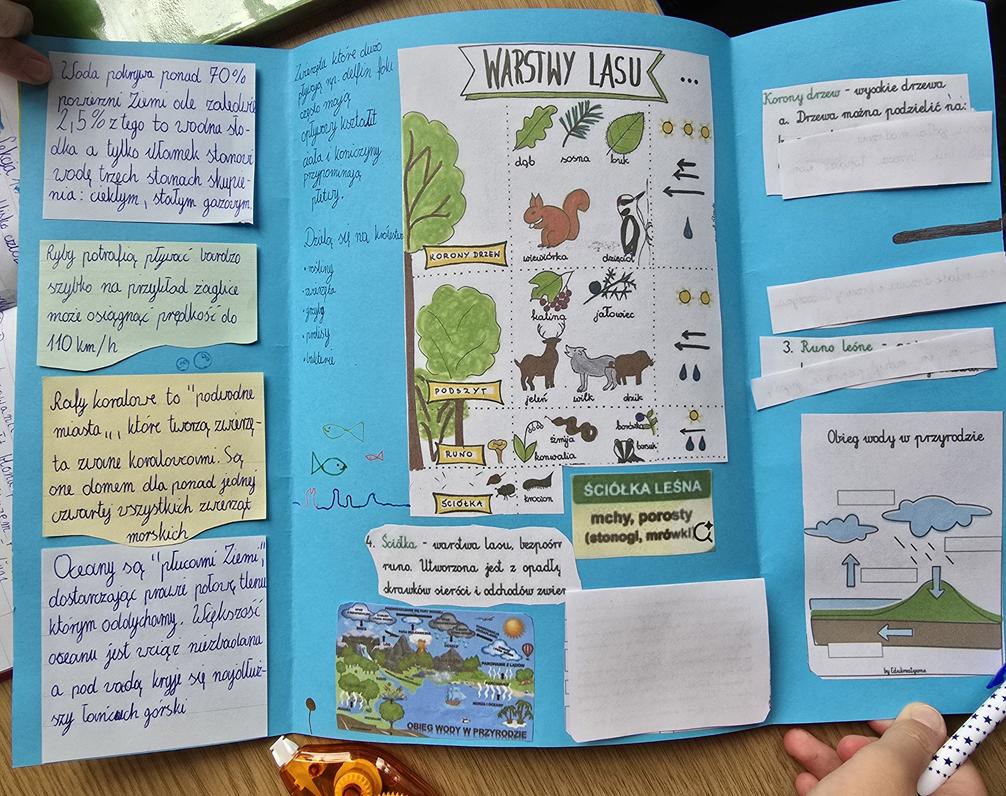 Woda pokrywa ponad 70%
powierzni Ziemi ale zaledwie
2,5% z tego to wodna sło-
dka a tylko ułamek stanowi
wodę trzech stanach skupie-
nia: ciekłym, stałym gazowym.
Ryby potrafią pływać bardzo
szybko na przykład żaglice
może osiągnąć prędkość do
110 km/h
Rafy koralowe to "podwodne
miasta", które tworzą zwierzę-
ta zwane koralowcami. Są
one domem dla ponad jednej
czwartej wszystkich zwierząt
morskich
Oceany są "płucami Ziemi",
dostarczając prawie połowę tlenu
którym oddychamy. Większość
oceanu jest wciąż niezbadana
a pod wodą kryje się najdłuż-
szy łańcuch górski
Zwierzęta które dużo
pływają np. delfin foki
często mają
opływowy kształt
ciała i kończyny
przypominają
płetwy.
Dzielą się na królestwa
• rośliny
• zwierzęta
• grzyby
• protisty
• bakterie
WARSTWY LASU ...
dąb sosna buk
wiewiórka dzięcioł
KORONY DRZEW
kalina jałowiec
jeleń wilk dzik
PODSZYT
żmija borówka
konwalia borsuk
RUNO
ŚCIÓŁKA
ŚCIÓŁKA LEŚNA
mchy, porosty
(stonogi, mrówki
4. Ściółka - warstwa lasu, bezpośr
runo. Utworzona jest z opadły
skrawków sierści i odchodów zwier
PAROWANIE Z LĄDÓW
OBIEG WODY W PRZYRODZIE
Korony drzew - wysokie drzewa
a. Drzewa można podzielić na:
3. Runo leśne -
Obieg wody w przyrodzie
by Edukreatywna